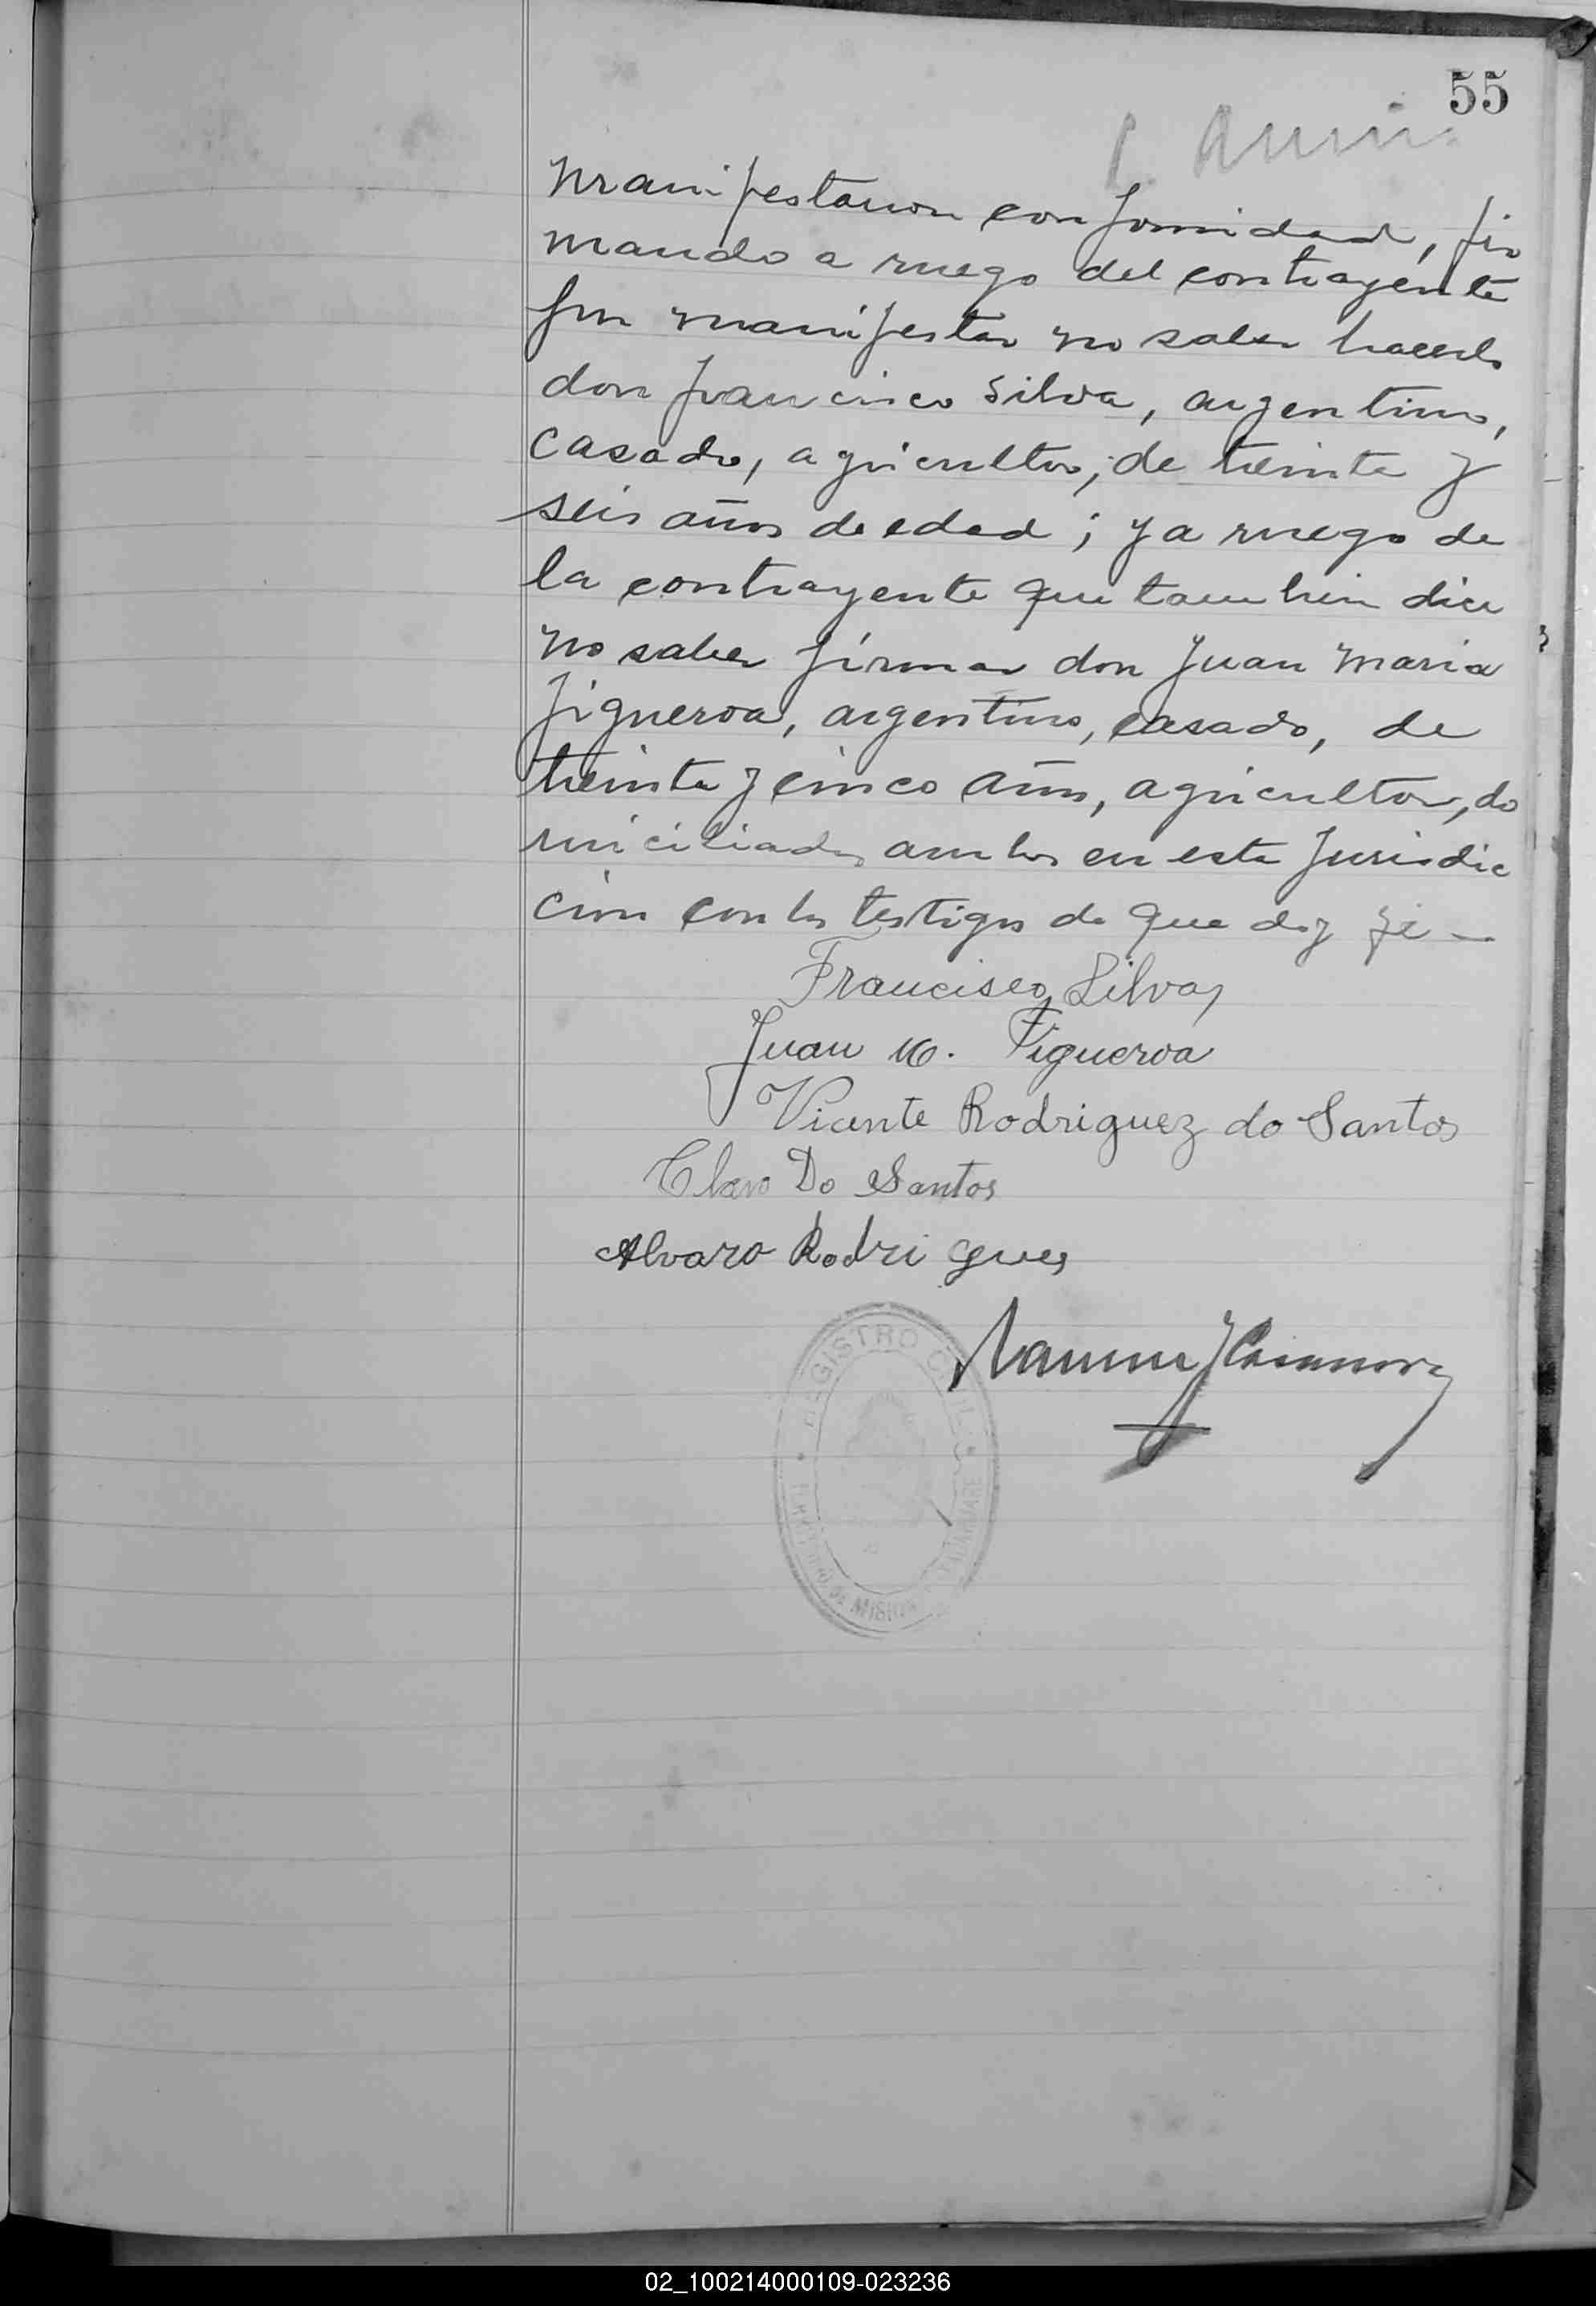 55
manifestaron conformidad, fir
mando a ruego del contrayente
por manifestar no saber hacerlo
don Francisco Silva, argentino,
casado, agricultor, de treinta y
seis años de edad; y a ruego de
la contrayente que tambien dice
no saber firmar don Juan Maria
Figueroa, argentino, casado, de
treinta y cinco años, agricultor, do
miciliados ambos en esta Jurisdic
cion con los testigos de que doy fé —
Francisco Silva
Juan M. Figueroa
Vicente Rodriguez do Santos
Claro Do Santos
Alvaro Rodrigues
REGISTRO CIVIL
TERRITORIO DE MISIONES
02_100214000109-023236